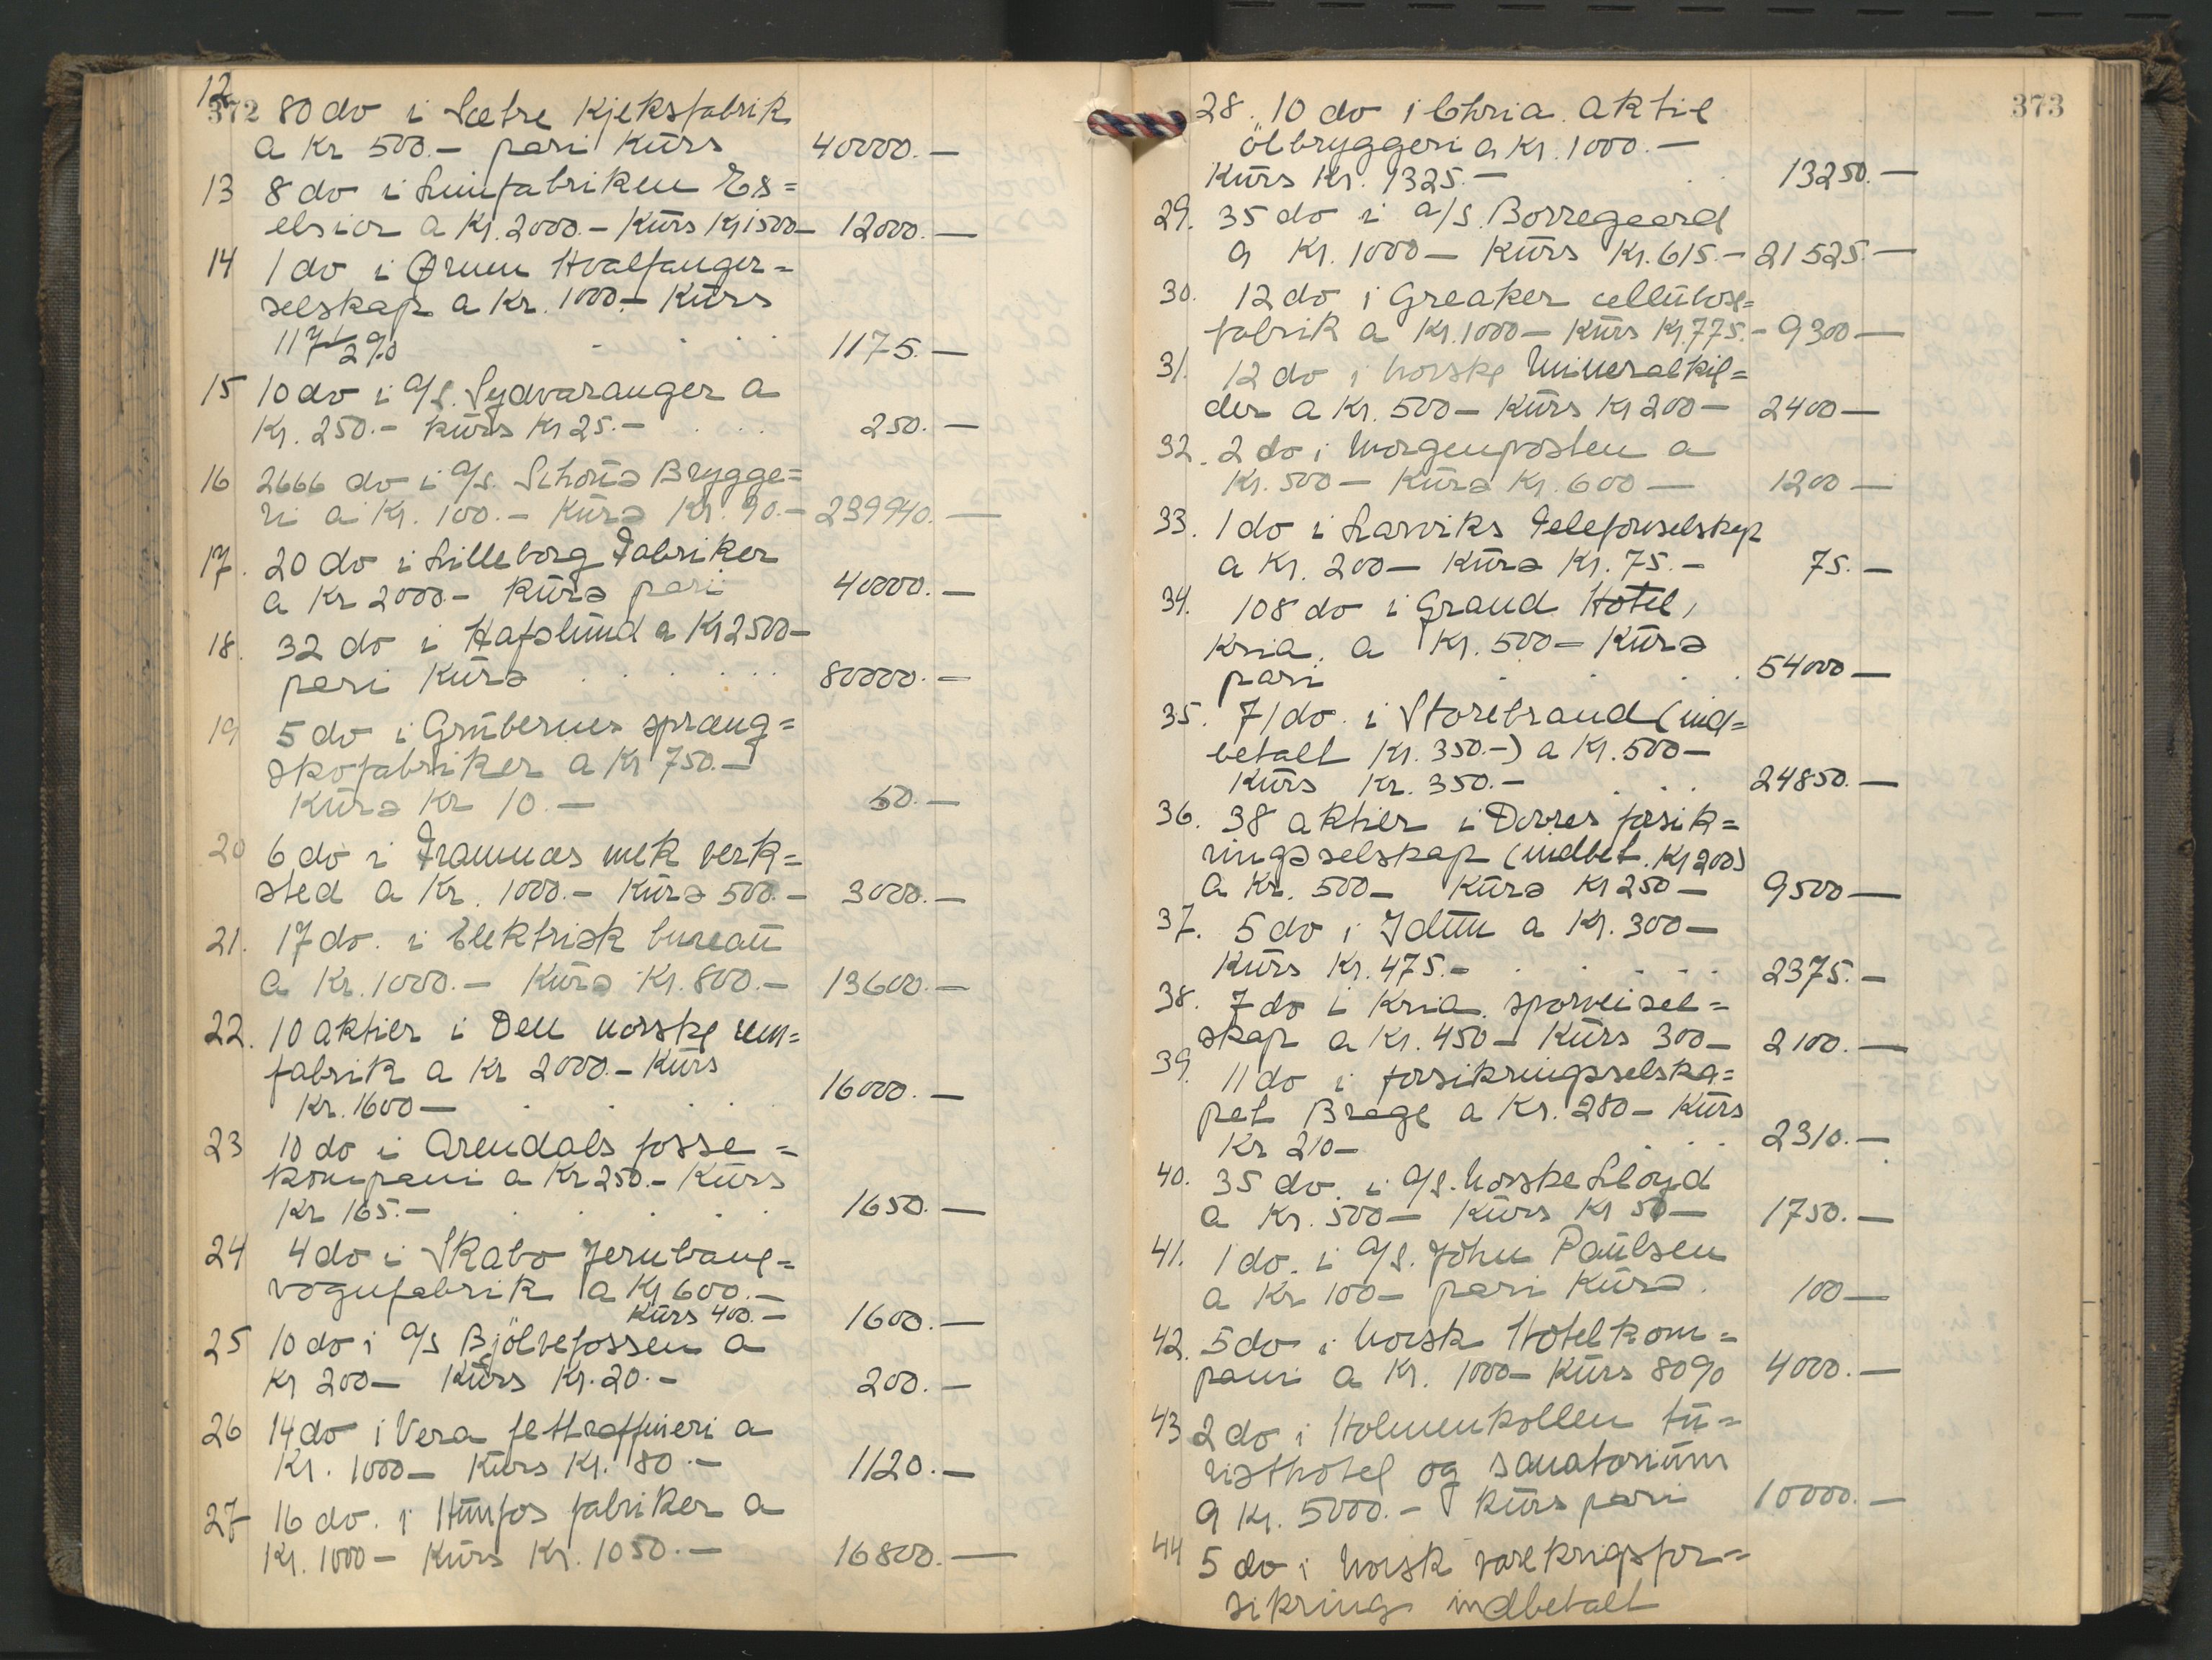 372
12 80 do i Sætre Kjeksfabrik
a Kr 500.- pari Kurs 40000.-
13 8 do i Limfabriken Ex=
elsior a Kr. 2000.- Kurs Kr 1500- 12000.-
14 1 do i Ørnen Hvalfanger=
selskap a Kr. 1000.- Kurs
117 1/2 % 1175.-
15 10 do i A/S. Sydvaranger a
Kr. 250.- Kurs Kr 25.- 250.-
16 2666 do i A/S. Schous Brygge=
ri a Kr. 100.- Kurs Kr. 90.- 239940.-
17. 20 do i Lilleborg Fabriker
a Kr 2000.- Kurs pari 40000.-
18. 32 do i Hafslund a Kr 2500-
pari Kurs 80000.-
19 5 do i Grubernes spræng=
stofabriker a Kr 750.-
Kurs Kr 10.- 50.-
20 6 do i Framnæs mek verk=
sted a Kr. 1000.- Kurs 500.- 3000.-
21. 17 do. i Elektrisk bureau
a Kr. 1000.- Kurs Kr. 800.- 13600.-
22. 10 aktier i Den norske rem=
fabrik a Kr 2000.- Kurs
Kr. 1600- 16000.-
23 10 do i Arendals fosse=
kompani a Kr 250.- Kurs
Kr 165.- 1650.-
24 4 do i Skabo Jernbane=
vognfabrik a Kr 600.-
Kurs 400.- 1600.-
25 10 do i A/S Bjölvefossen a
Kr 200- Kurs Kr. 20.- 200.-
26 14 do i Vera fettraffineri a
Kr. 1000- Kurs Kr. 80.- 1120.-
27 16 do. i Hunfos fabriker a
Kr. 1000- Kurs Kr. 1050.- 16800.-
373
28. 10 do i Chria. Aktie
ölbryggeri a Kr. 1000.-
Kurs Kr. 1325.- 13250.-
29. 35 do i a/s. Borregaard
a Kr. 1000- Kurs Kr. 615.- 21525.-
30. 12 do i Greaker cellulose=
fabrik a Kr. 1000- Kurs Kr. 775.- 9300-
31. 12 do i norske Mineralkil=
der a Kr. 500- Kurs Kr 200- 2400-
32. 2 do i Morgenposten a
Kr. 500- Kurs Kr. 600- 1200-
33. 1 do i Larviks Telefonselskap
a Kr. 200- Kurs Kr. 75.- 75.-
34. 108 do i Grand Hotel,
Kria. a Kr. 500- Kurs
pari 54000-
35. 71 do. i Storebrand (ind=
betalt Kr. 350.-) a Kr. 500-
Kurs Kr. 350.- 24850.-
36. 38 aktier i Dovres forsik=
ringsselskap (indbet. Kr 200)
a Kr. 500- Kurs Kr 250- 9500-
37. 5 do i Idun a Kr. 300-
Kurs Kr. 475.- 2375.-
38. 7 do i Kria. sporveisel=
skap a Kr. 450- Kurs 300- 2100.-
39. 11 do i forsikringsselska=
pet Brage a Kr. 280- Kurs
Kr 210- 2310.-
40. 35 do. i A/S. Norske Lloyd
a Kr. 500- Kurs Kr 50- 1750.-
41. 1 do. i A/S. John Paulsen
a Kr 100- pari Kurs. 100-
42. 5 do i Norsk Hotelkom=
pani a Kr. 1000- Kurs 80% 4000.-
43 2 do i Holmenkollen tu=
risthotel og sanatorium
a Kr. 5000.- Kurs pari 10000.-
44 5 do i Norsk varekrigsfor=
sikring indbetalt